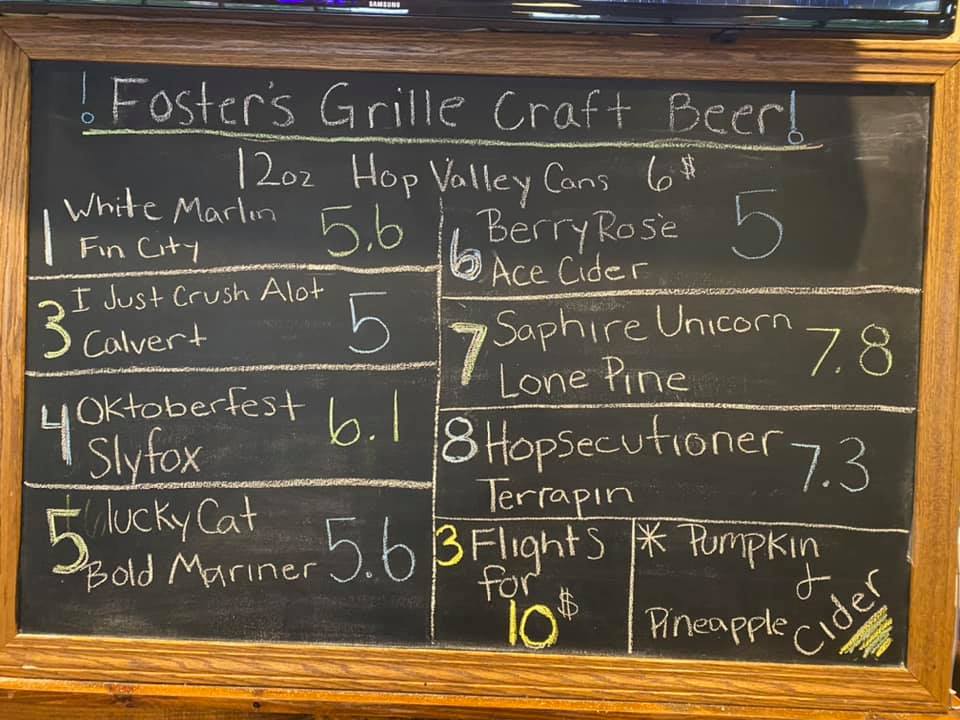 SAMSUNG
! Foster's Grille Craft Beer!
12oz Hop Valley Cans 6$
1 White Marlin 5.6
Fin City
3 I Just Crush Alot 5
Calvert
4 Oktoberfest 6.1
Slyfox
5 lucky Cat 5.6
Bold Mariner
6 Berry Rosè 5
Ace Cider
7 Saphire Unicorn 7.8
Lone Pine
8 Hopsecutioner 7.3
Terrapin
3 Flights
for
10$
* Pumpkin
&
Pineapple Cider